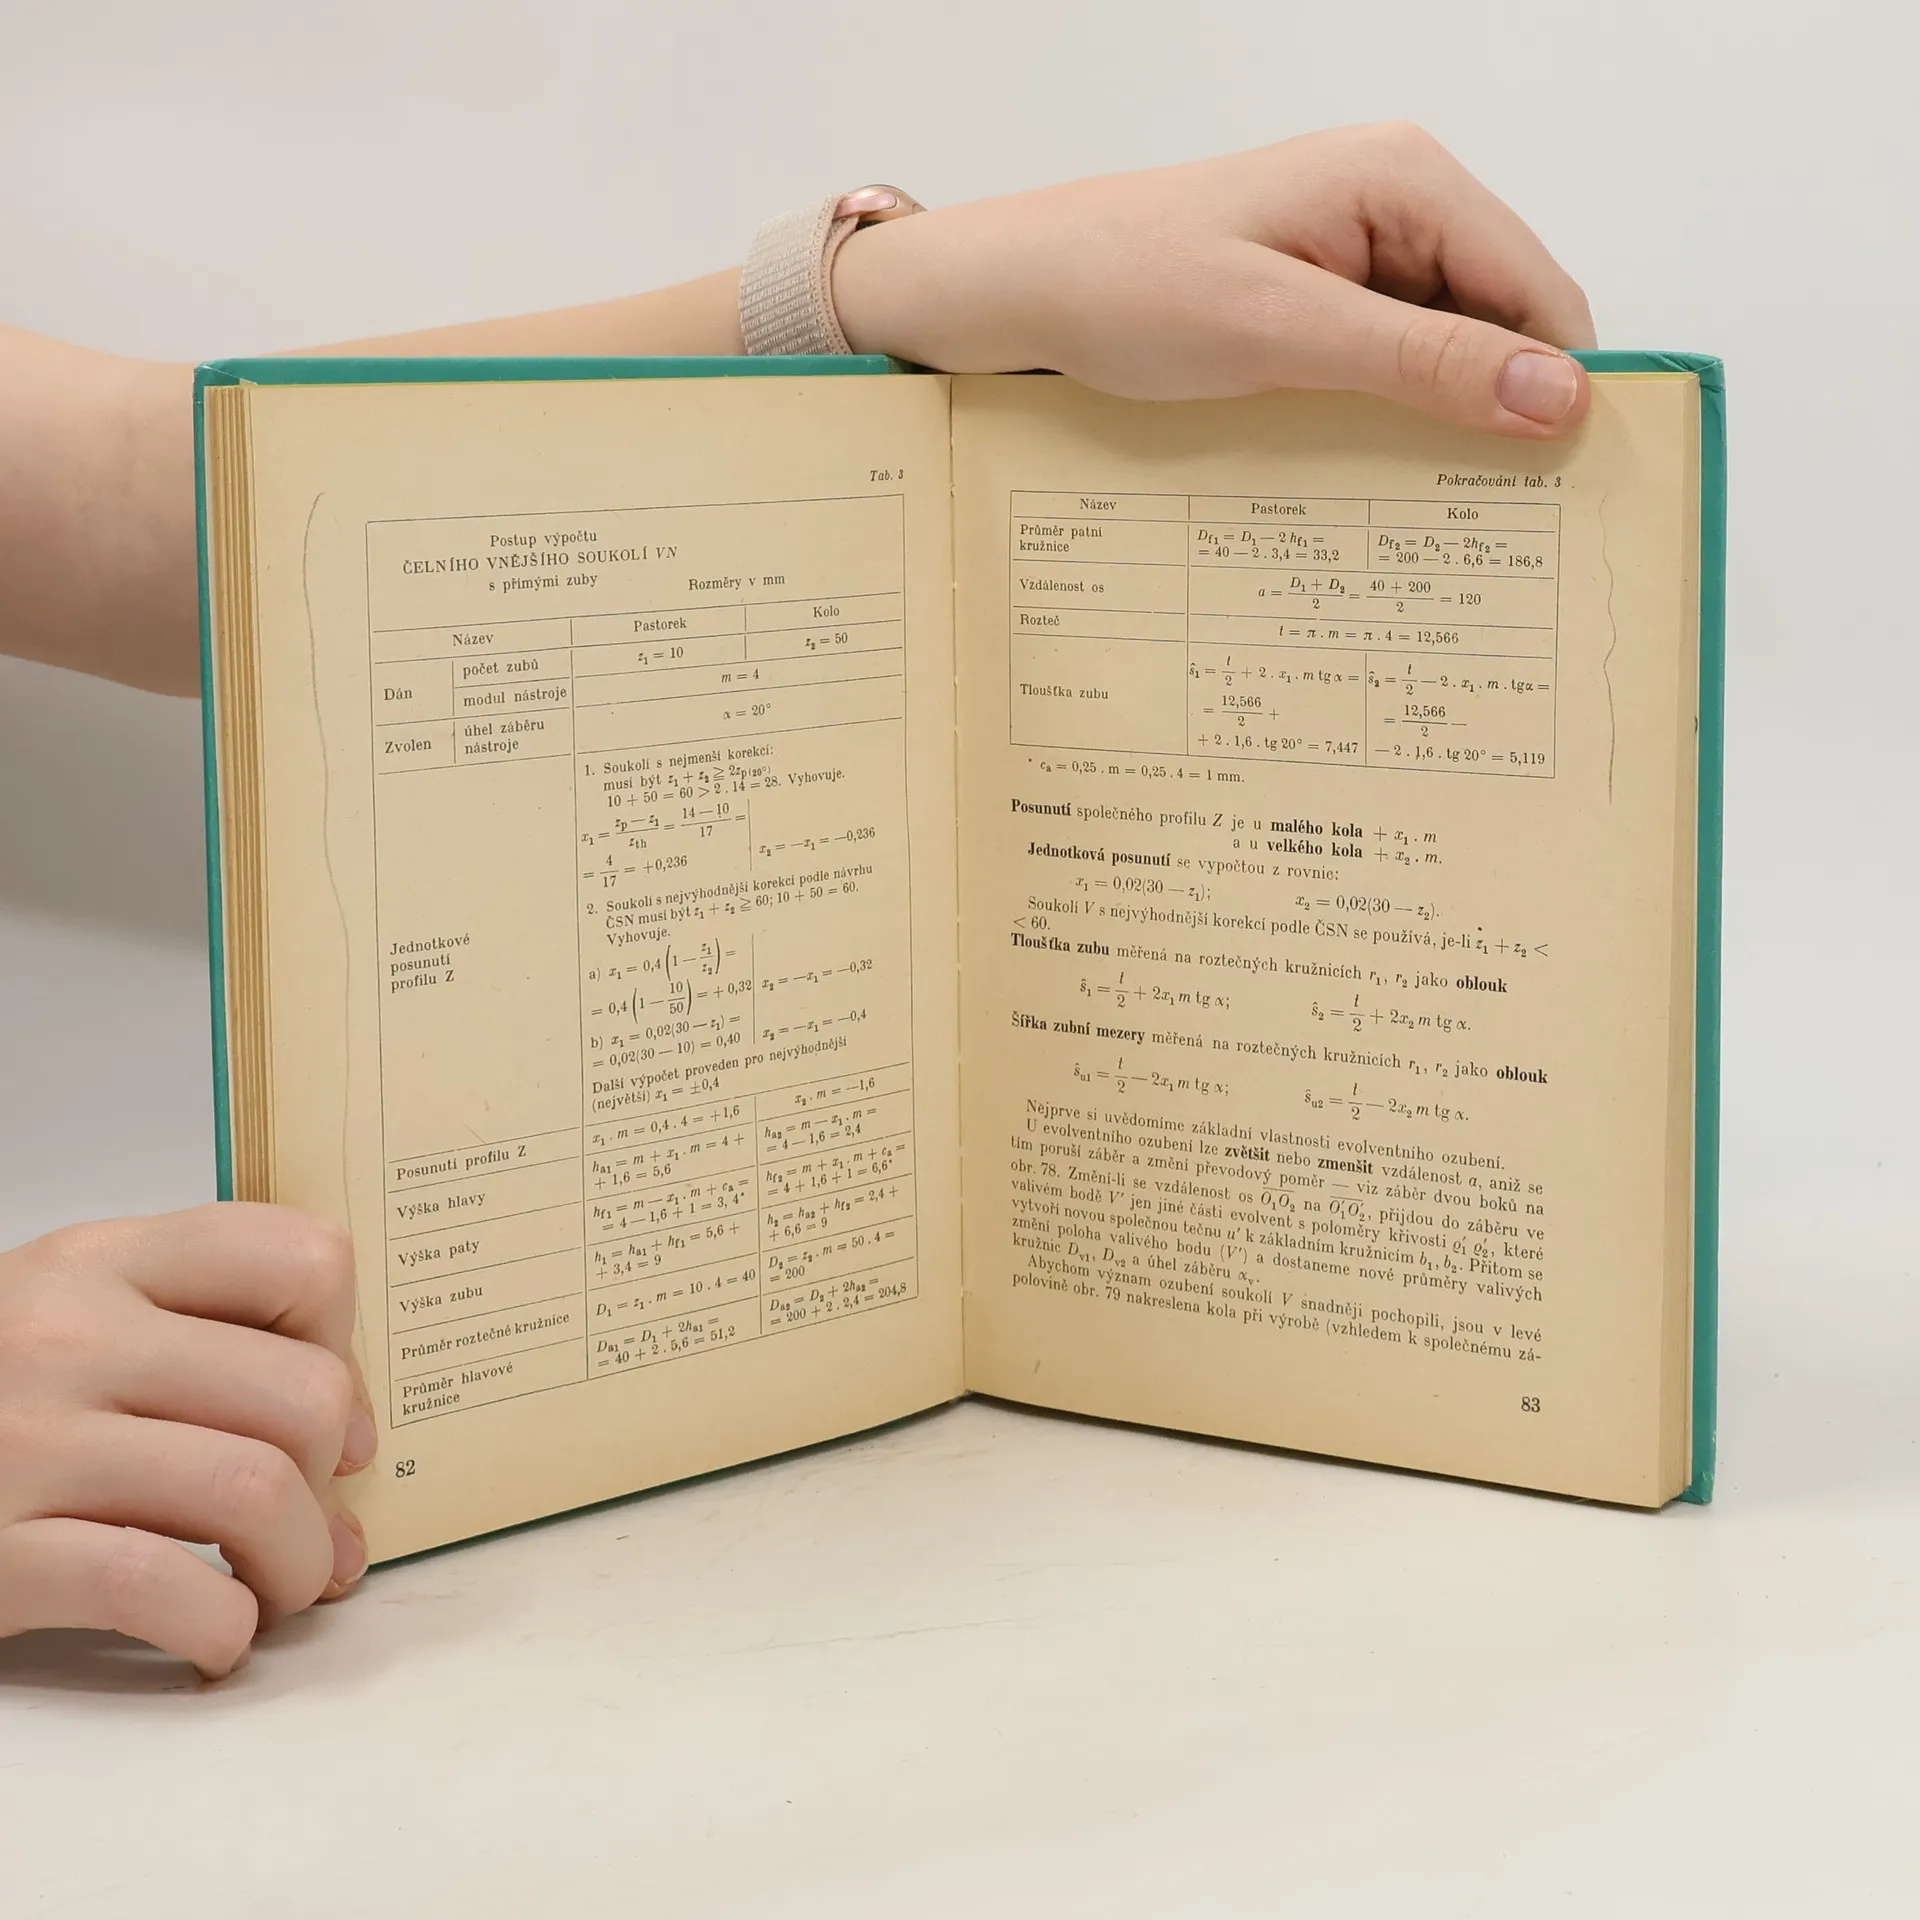 Tab. 3
Postup výpočtu
ČELNÍHO VNĚJŠÍHO SOUKOLÍ VN
s přímými zuby Rozměry v mm
Název Pastorek Kolo
Dán počet zubů z₁ = 10 z₂ = 50
modul nástroje m = 4
Zvolen úhel záběru nástroje α = 20°
Jednotkové
posunutí
profilu Z
1. Soukolí s nejmenší korekcí:
musí být z₁ + z₂ ≧ 2zp(20°)
10 + 50 = 60 > 2 . 14 = 28. Vyhovuje.
x₁ = (zp — z₁)/zth = (14 — 10)/17 =
= 4/17 = +0,236 x₂ = —x₁ = —0,236
2. Soukolí s nejvýhodnější korekcí podle návrhu
ČSN musí být z₁ + z₂ ≧ 60; 10 + 50 = 60.
Vyhovuje.
a) x₁ = 0,4 (1 — z₁/z₂) =
= 0,4 (1 — 10/50) = + 0,32 x₂ = —x₁ = —0,32
b) x₁ = 0,02(30 — z₁) =
= 0,02(30 — 10) = 0,40 x₂ = —x₁ = —0,4
Další výpočet proveden pro nejvýhodnější
(největší) x₁ = ±0,4
Posunutí profilu Z x₁ . m = 0,4 . 4 = +1,6 x₂ . m = —1,6
Výška hlavy ha1 = m + x₁ . m = 4 + ha2 = m — x₁ . m =
+ 1,6 = 5,6 = 4 — 1,6 = 2,4
Výška paty hf1 = m — x₁ . m + ca = hf2 = m + x₁ . m + ca =
= 4 — 1,6 + 1 = 3, 4* = 4 + 1,6 + 1 = 6,6*
Výška zubu h₁ = ha1 + hf1 = 5,6 + h₂ = ha2 + hf2 = 2,4 +
+ 3,4 = 9 + 6,6 = 9
Průměr roztečné kružnice D₁ = z₁ . m = 10 . 4 = 40 D₂ = z₂ . m = 50 . 4 =
= 200
Průměr hlavové
kružnice
Da1 = D₁ + 2ha1 = Da2 = D₂ + 2ha2 =
= 40 + 2 . 5,6 = 51,2 = 200 + 2 . 2,4 = 204,8
82
Pokračování tab. 3
Název Pastorek Kolo
Průměr patní Df1 = D₁ — 2 hf1 = Df2 = D₂ — 2hf2 =
kružnice = 40 — 2 . 3,4 = 33,2 = 200 — 2 . 6,6 = 186,8
Vzdálenost os a = (D₁ + D₂)/2 = (40 + 200)/2 = 120
Rozteč t = π . m = π . 4 = 12,566
Tloušťka zubu ŝ₁ = t/2 + 2 . x₁ . m tg α = ŝ₂ = t/2 — 2 . x₁ . m . tgα =
= 12,566/2 + = 12,566/2 —
+ 2 . 1,6 . tg 20° = 7,447 — 2 . 1,6 . tg 20° = 5,119
* ca = 0,25 . m = 0,25 . 4 = 1 mm.
Posunutí společného profilu Z je u malého kola + x₁ . m
a u velkého kola + x₂ . m.
Jednotková posunutí se vypočtou z rovnic:
x₁ = 0,02(30 — z₁); x₂ = 0,02(30 — z₂).
Soukolí V s nejvýhodnější korekcí podle ČSN se používá, je-li z₁ + z₂ <
< 60.
Tloušťka zubu měřená na roztečných kružnicích r₁, r₂ jako oblouk
ŝ₁ = t/2 + 2x₁ m tg α; ŝ₂ = t/2 + 2x₂ m tg α.
Šířka zubní mezery měřená na roztečných kružnicích r₁, r₂ jako oblouk
ŝu1 = t/2 — 2x₁ m tg α; ŝu2 = t/2 — 2x₂ m tg α.
Nejprve si uvědomíme základní vlastnosti evolventního ozubení.
U evolventního ozubení lze zvětšit nebo zmenšit vzdálenost a, aniž se
tím poruší záběr a změní převodový poměr — viz záběr dvou boků na
obr. 78. Změní-li se vzdálenost os O₁O₂ na O₁′O₂′, přijdou do záběru ve
valivém bodě V′ jen jiné části evolvent s poloměry křivosti ϱ₁′ ϱ₂′, které
vytvoří novou společnou tečnu u′ k základním kružnicím b₁, b₂. Přitom se
změní poloha valivého bodu (V′) a dostaneme nové průměry valivých
kružnic Dv1, Dv2 a úhel záběru αv.
Abychom význam ozubení soukolí V snadněji pochopili, jsou v levé
polovině obr. 79 nakreslena kola při výrobě (vzhledem k společnému zá-
83